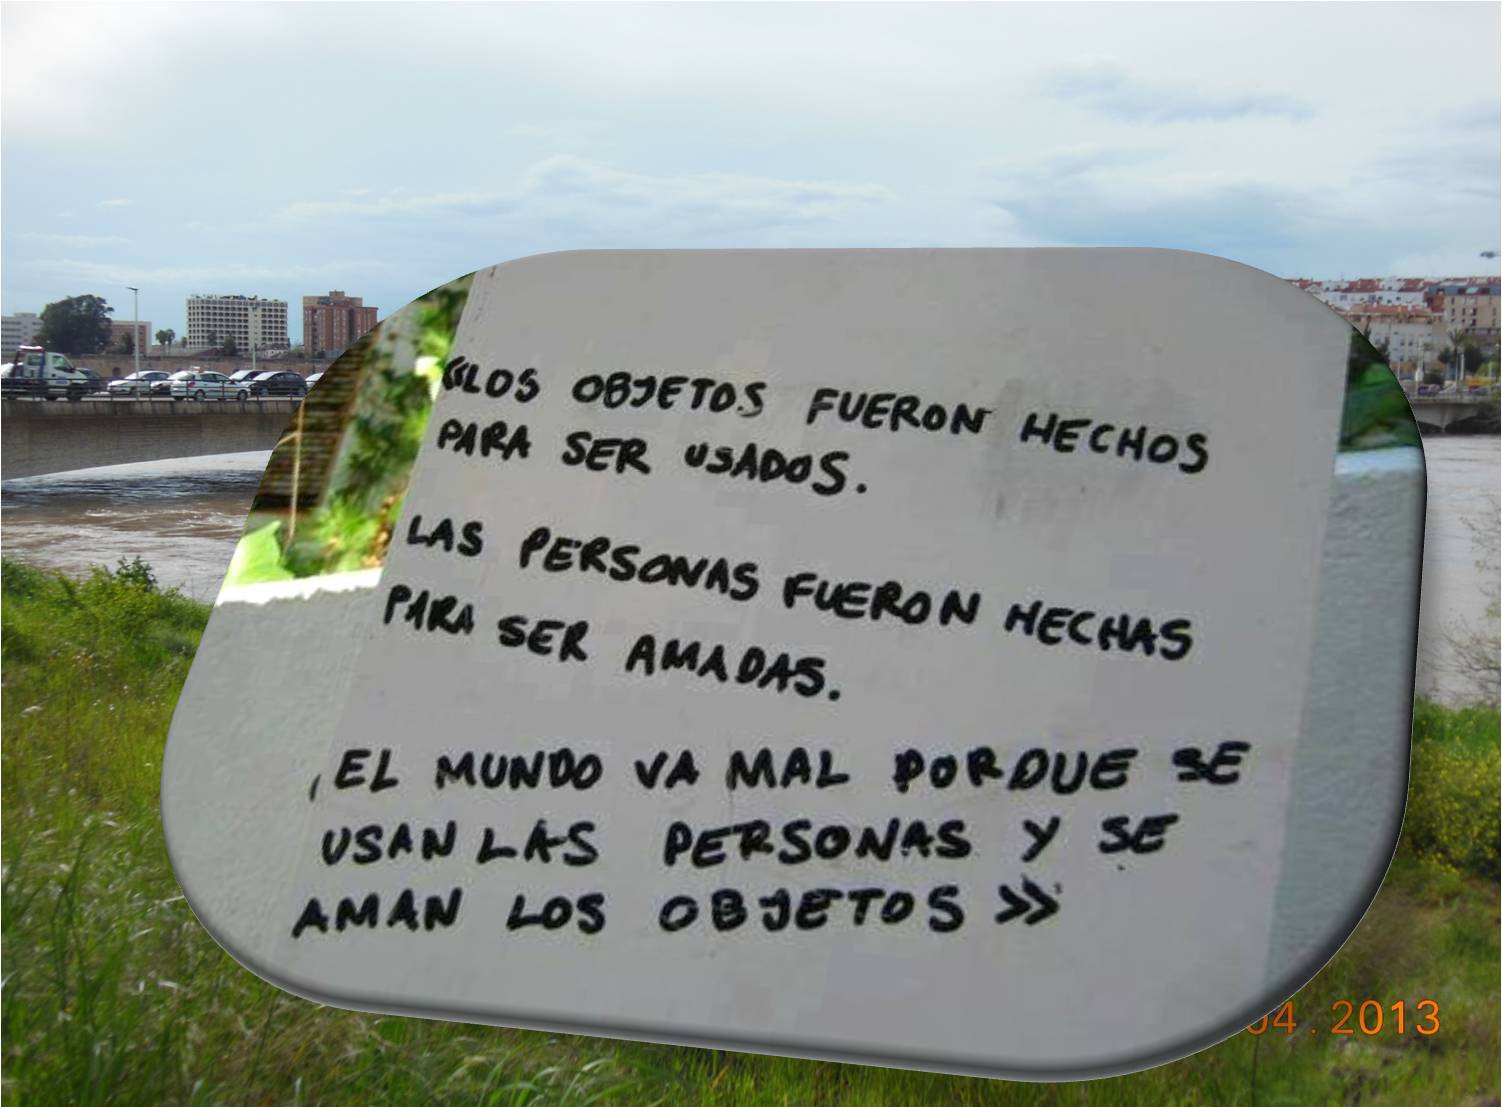 «LOS OBJETOS FUERON HECHOS
PARA SER USADOS.
LAS PERSONAS FUERON HECHAS
PARA SER AMADAS.
EL MUNDO VA MAL PORQUE SE
USAN LAS PERSONAS Y SE
AMAN LOS OBJETOS»
04.2013